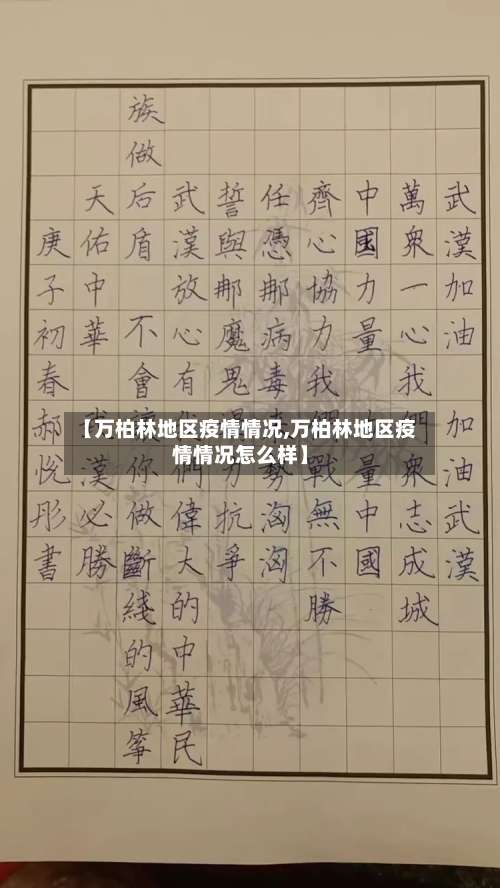 武漢加油 加油武漢
萬眾一心我們眾志成城
中國力量 量中國
齊心協力我們戰無不勝
任憑那病毒勢洶洶
誓與那魔鬼力抗爭
武漢放心有們偉大的中華民
族做后盾 不會讓你做斷綫的風箏
天佑中華 武漢必勝
庚子初春郝悅彤書
【万柏林地区疫情情况,万柏林地区疫
情情况怎么样】